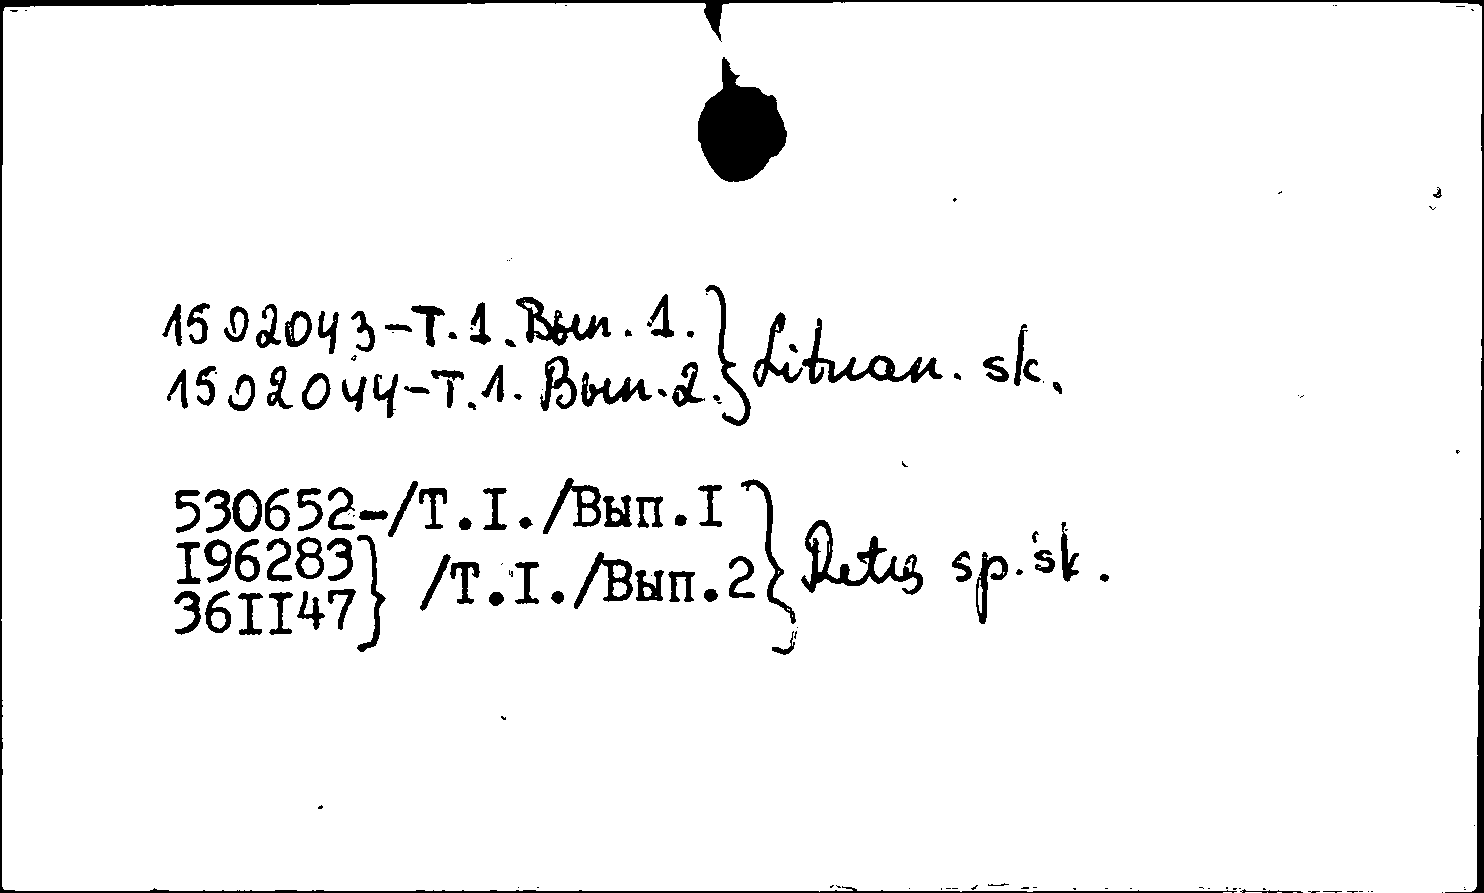 1502043-Т.1.Вып.1. } Lituan. sk.
1502044-Т.1.Вып.2.
530652-/Т.I./Вып.I } Retų sp. sk.
I96283 } /Т.I./Вып.2
36II47